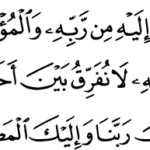 إِلَيْهِ مِن رَّبِّهِۦ وَٱلْمُؤْ
هِۦ لَا نُفَرِّقُ بَيْنَ أَحَ
رَبَّنَا وَإِلَيْكَ ٱلْمَصِ